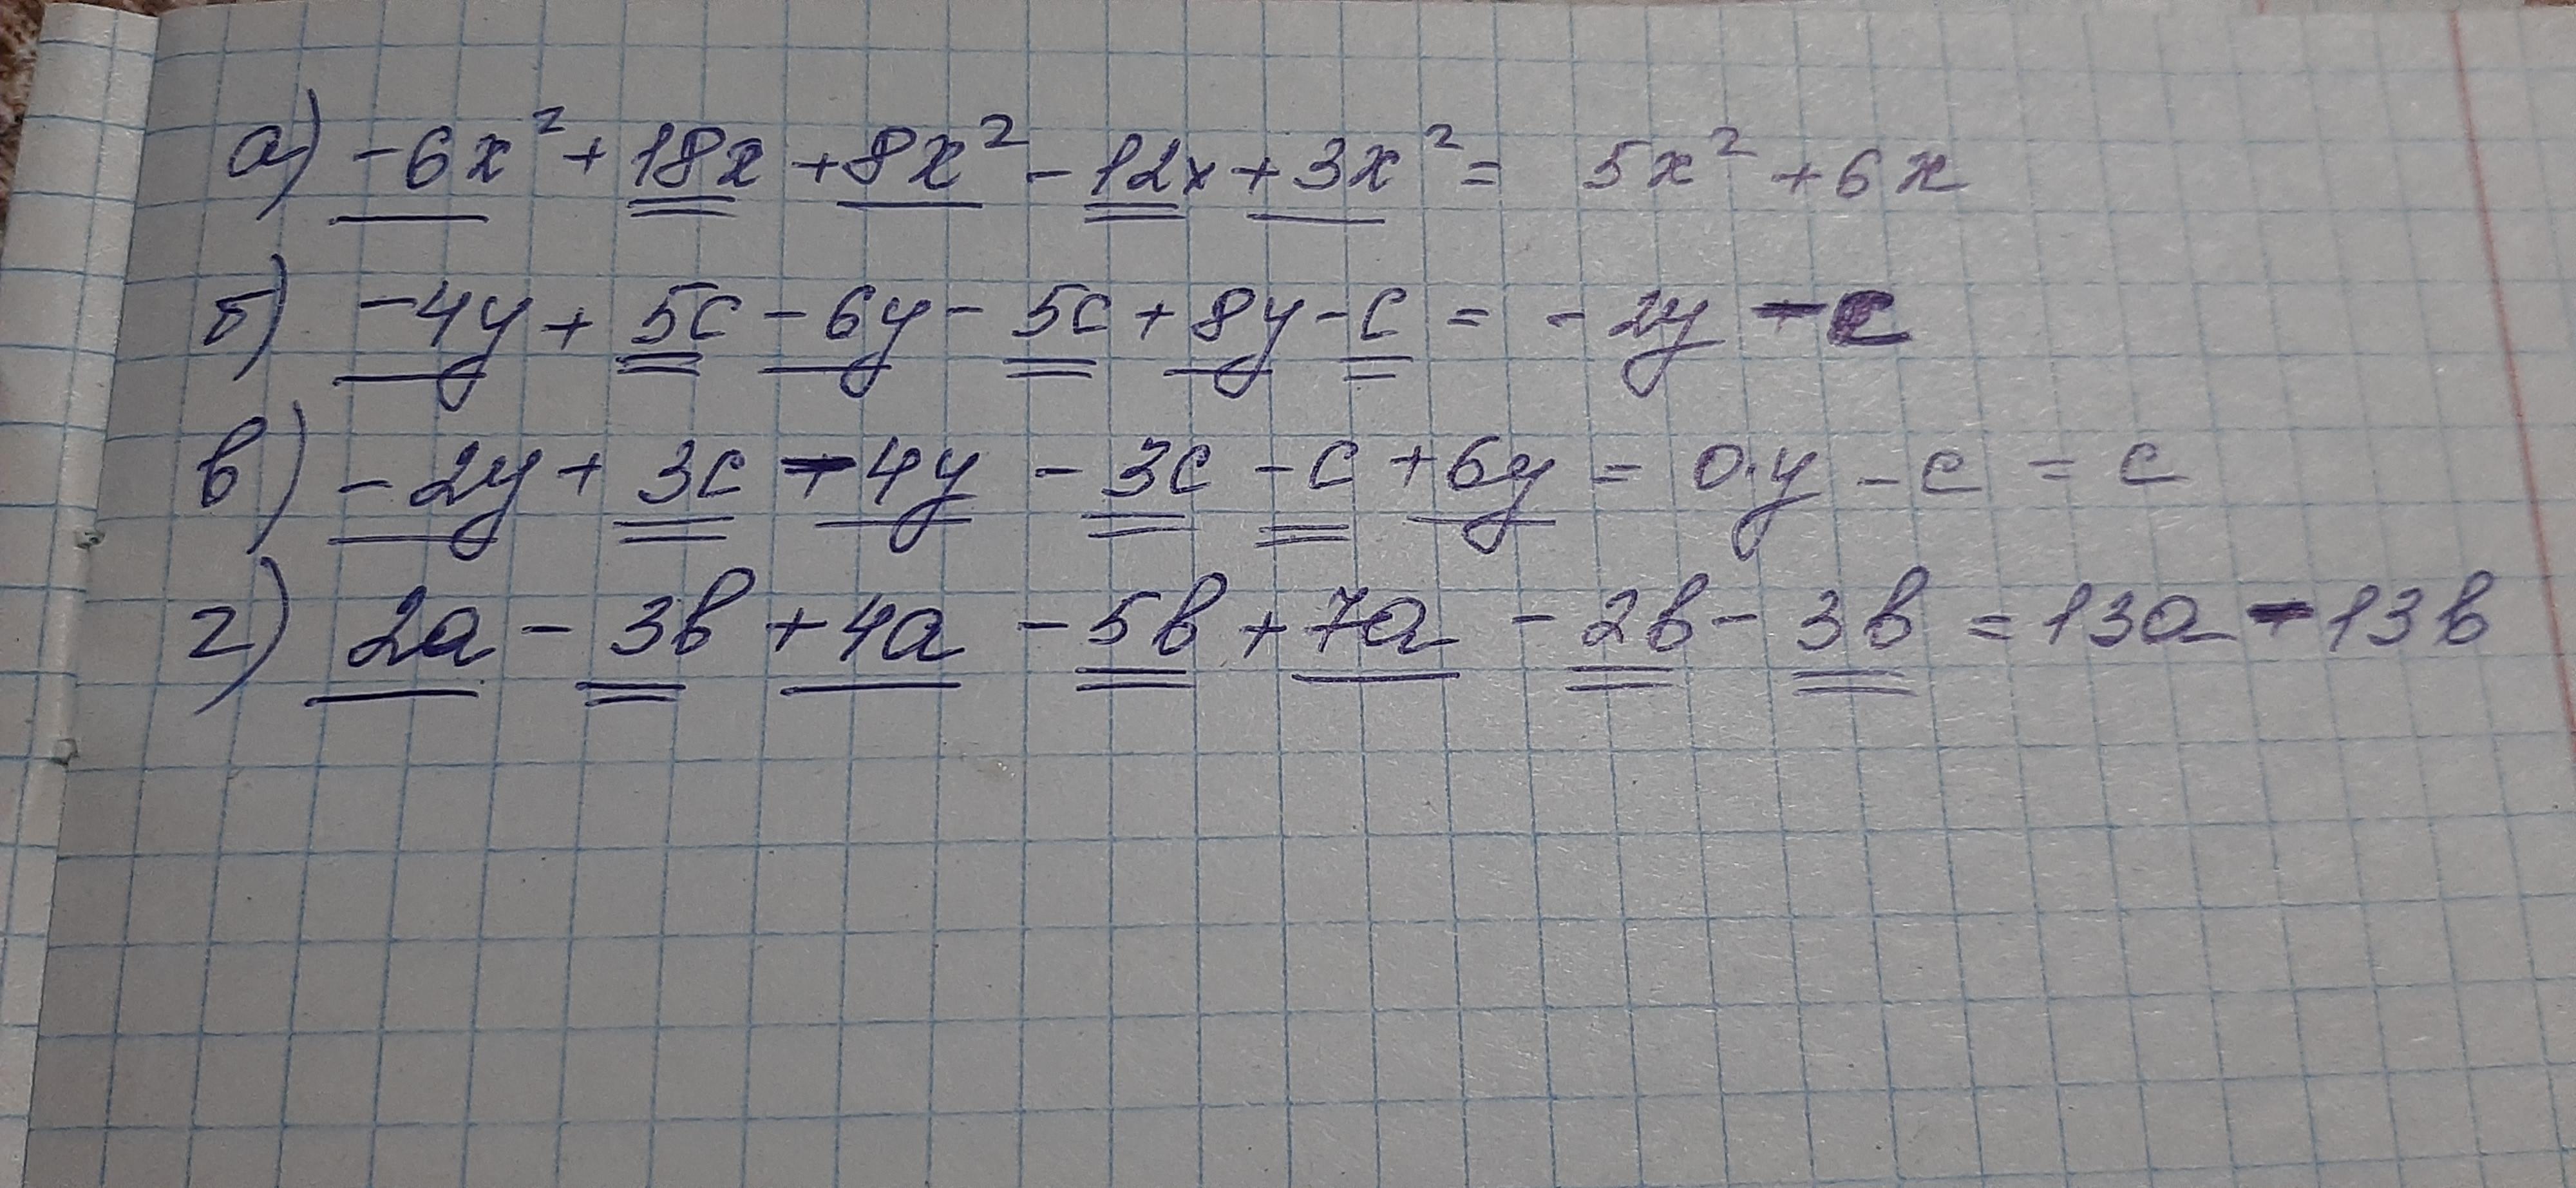 а) -6x² + 18x + 8x² - 12x + 3x² = 5x² + 6x
б) -4y + 5c - 6y - 5c + 8y - c = -2y - c
в) -2y + 3c - 4y - 3c - c + 6y = 0·y - c = c
г) 2a - 3b + 4a - 5b + 7a - 2b - 3b = 13a - 13b